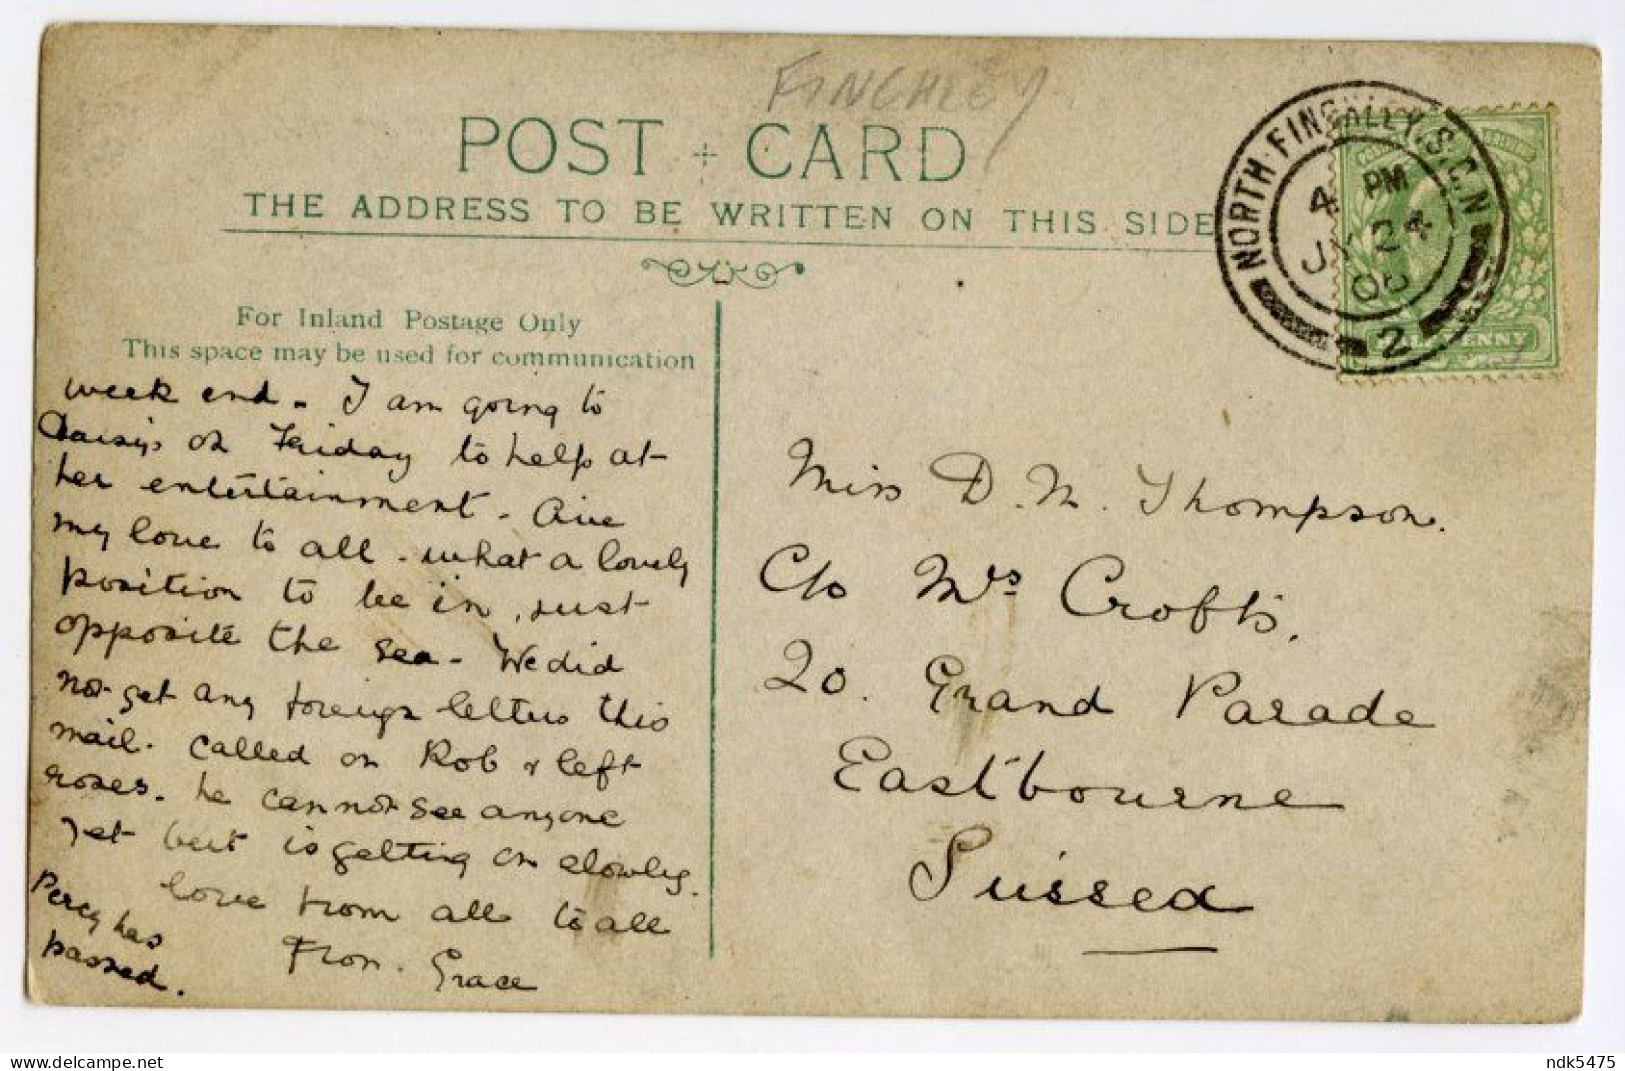 FINCHLEY
POST CARD
THE ADDRESS TO BE WRITTEN ON THIS SIDE
NORTH FINCHLEY. S.O. N
4 PM
JY 24
06
2
HALFPENNY
For Inland Postage Only
This space may be used for communication
week end. I am going to
Daisy's on Friday to help at
her entertainment. Give
my love to all. what a lovely
position to be in, just
opposite the sea. We did
not get any foreign letters this
mail. called on Rob & left
roses. he cannot see anyone
yet but is getting on slowly.
love from all to all
From. Grace
Percy has
passed.
Miss D. M. Thompson.
C/o Mrs Crofts.
20. Grand Parade
Eastbourne
Sussex
www.delcampe.net
ndk5475